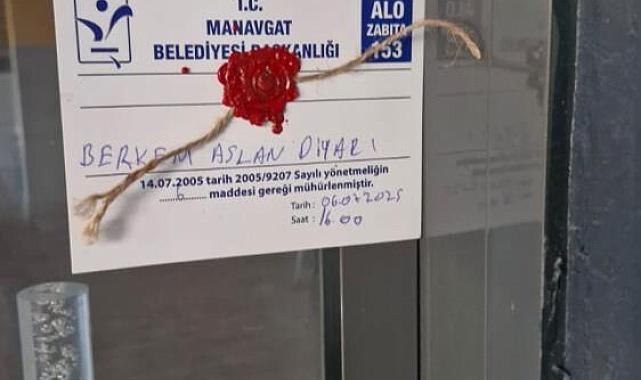 T.C.
MANAVGAT
BELEDİYESİ BAŞKANLIĞI
ALO
ZABITA
153
BERKEM ASLAN DİYARI
14.07.2005 tarih 2005/9207 Sayılı yönetmeliğin
......6...... maddesi gereği mühürlenmiştir.
Tarih : 06.07.2025
Saat : 16.00